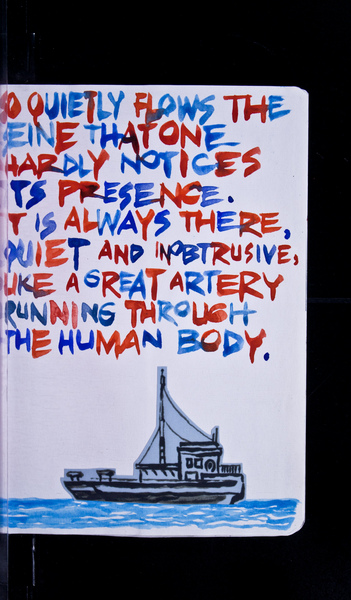 SO QUIETLY FLOWS THE
SEINE THAT ONE
HARDLY NOTICES
ITS PRESENCE.
IT IS ALWAYS THERE,
QUIET AND INOBTRUSIVE,
LIKE A GREAT ARTERY
RUNNING THROUGH
THE HUMAN BODY.